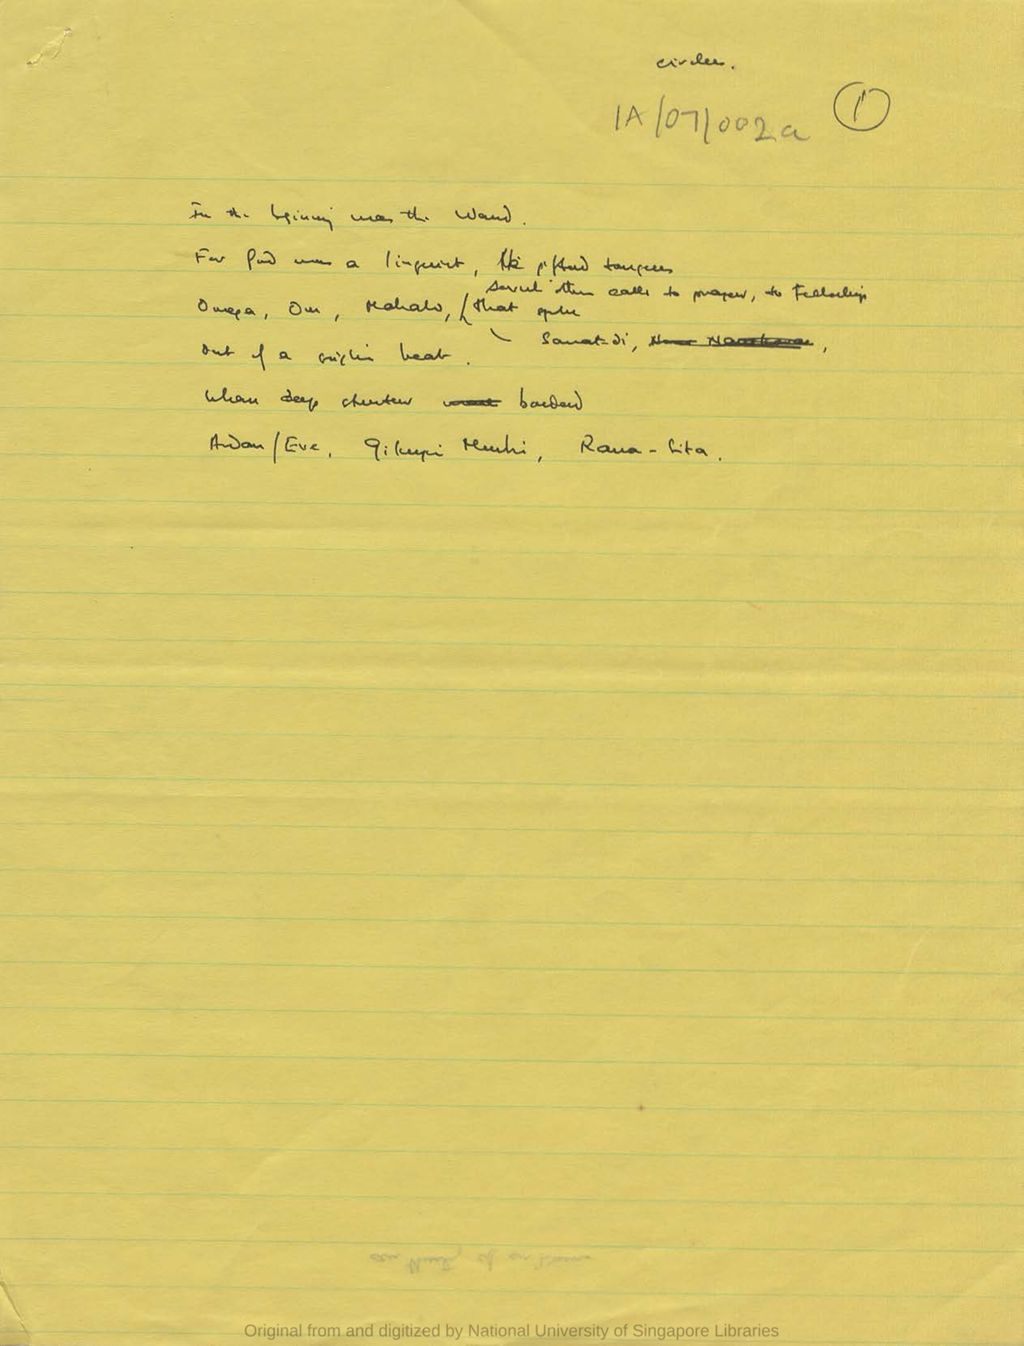 circles.
1A/07/002a 1
In the beginning was the Word.
For God was a linguist, He gifted tongues
served the calls to prayer, to fellowship
Omega, Om, Mahalo, / that spoke
Sawat-di,
out of a single heart.
When deep
Adam/Eve, Gikuyu Mumbi, Rama-Sita.
Original from and digitized by National University of Singapore Libraries